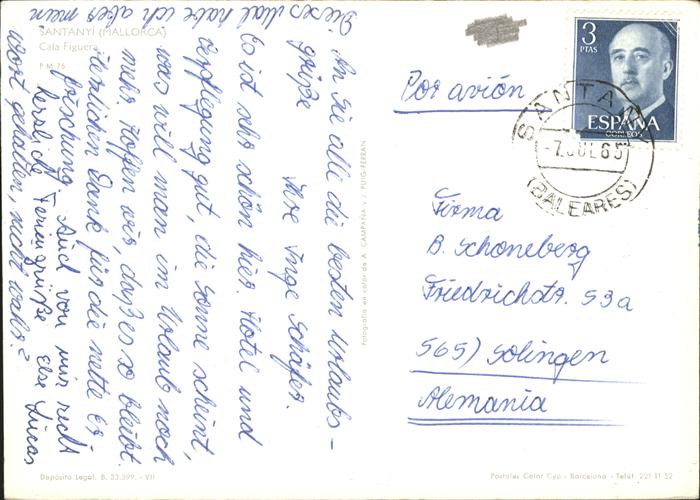 SANTANYÍ (MALLORCA)
Cala Figuera
P M 76
An Sie alle die besten Urlaubs-
grüße Ihre Inge Schäfer.
Es ist sehr schön hier. Hotel und
Verpflegung gut, die Sonne scheint,
was will man im Urlaub noch
mehr. Hoffen wir, daß es so bleibt.
Herzlichen Dank für die nette Er-
frischung - Auch von mir recht
herzliche Feriengrüße Else Lucas
Dieses Mal habe ich aber mein
Wort gehalten, nicht wahr?
Fotografía en color de A. CAMPAÑA y J. PUIG-FERRAN
Depósito Legal. B. 33.399. - VII
3
PTAS
ESPAÑA
CORREOS
SANTAÑY
-7.JUL.65
(BALEARES)
Por avión
Firma
B. Schöneberg
Friedrichstr. 53a
565) Solingen
Alemania
Postales Color Cyp - Barcelona - Telf. 221 11 52